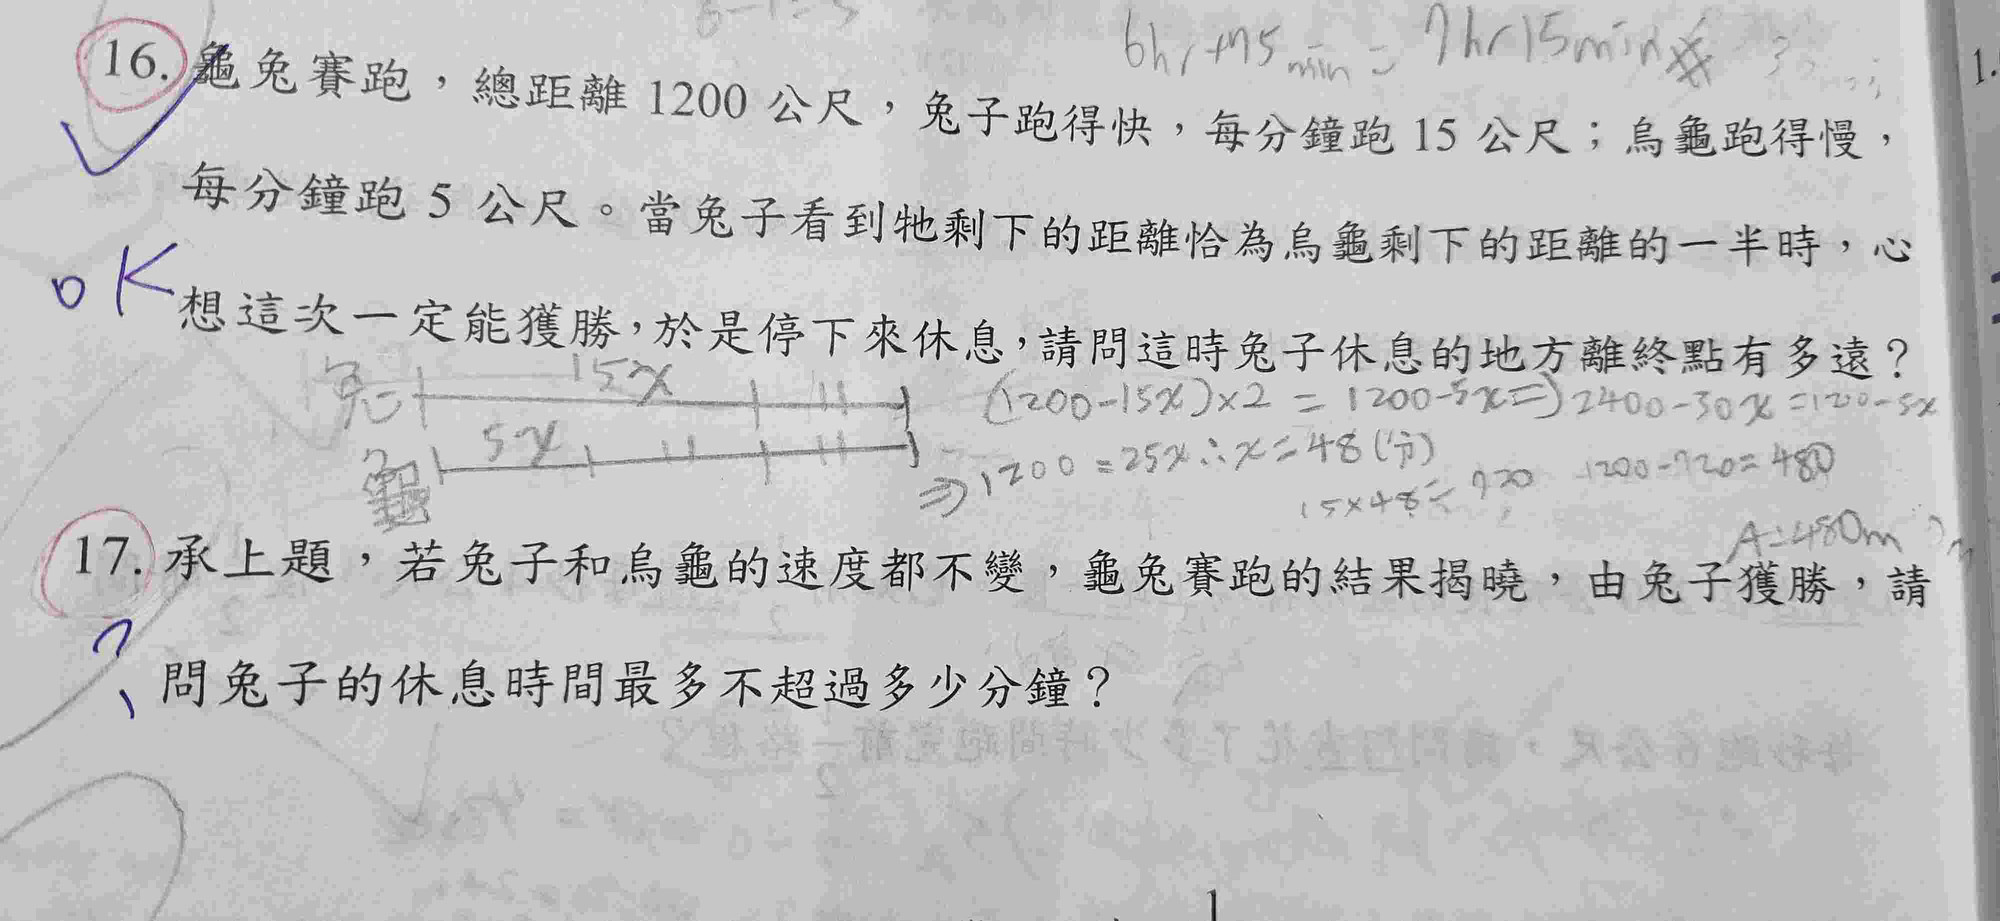 6hr+75min = 7hr15min
16. 龜兔賽跑，總距離 1200 公尺，兔子跑得快，每分鐘跑 15 公尺；烏龜跑得慢，
每分鐘跑 5 公尺。當兔子看到牠剩下的距離恰為烏龜剩下的距離的一半時，心
OK
想這次一定能獲勝，於是停下來休息，請問這時兔子休息的地方離終點有多遠？
兔 15x
(1200-15x)×2 = 1200-5x⇒2400-30x=1200-5x
龜 5x
⇒1200=25x∴x=48(分)
15×48=720 1200-720=480
A=480m
17. 承上題，若兔子和烏龜的速度都不變，龜兔賽跑的結果揭曉，由兔子獲勝，請
?
問兔子的休息時間最多不超過多少分鐘？
1.